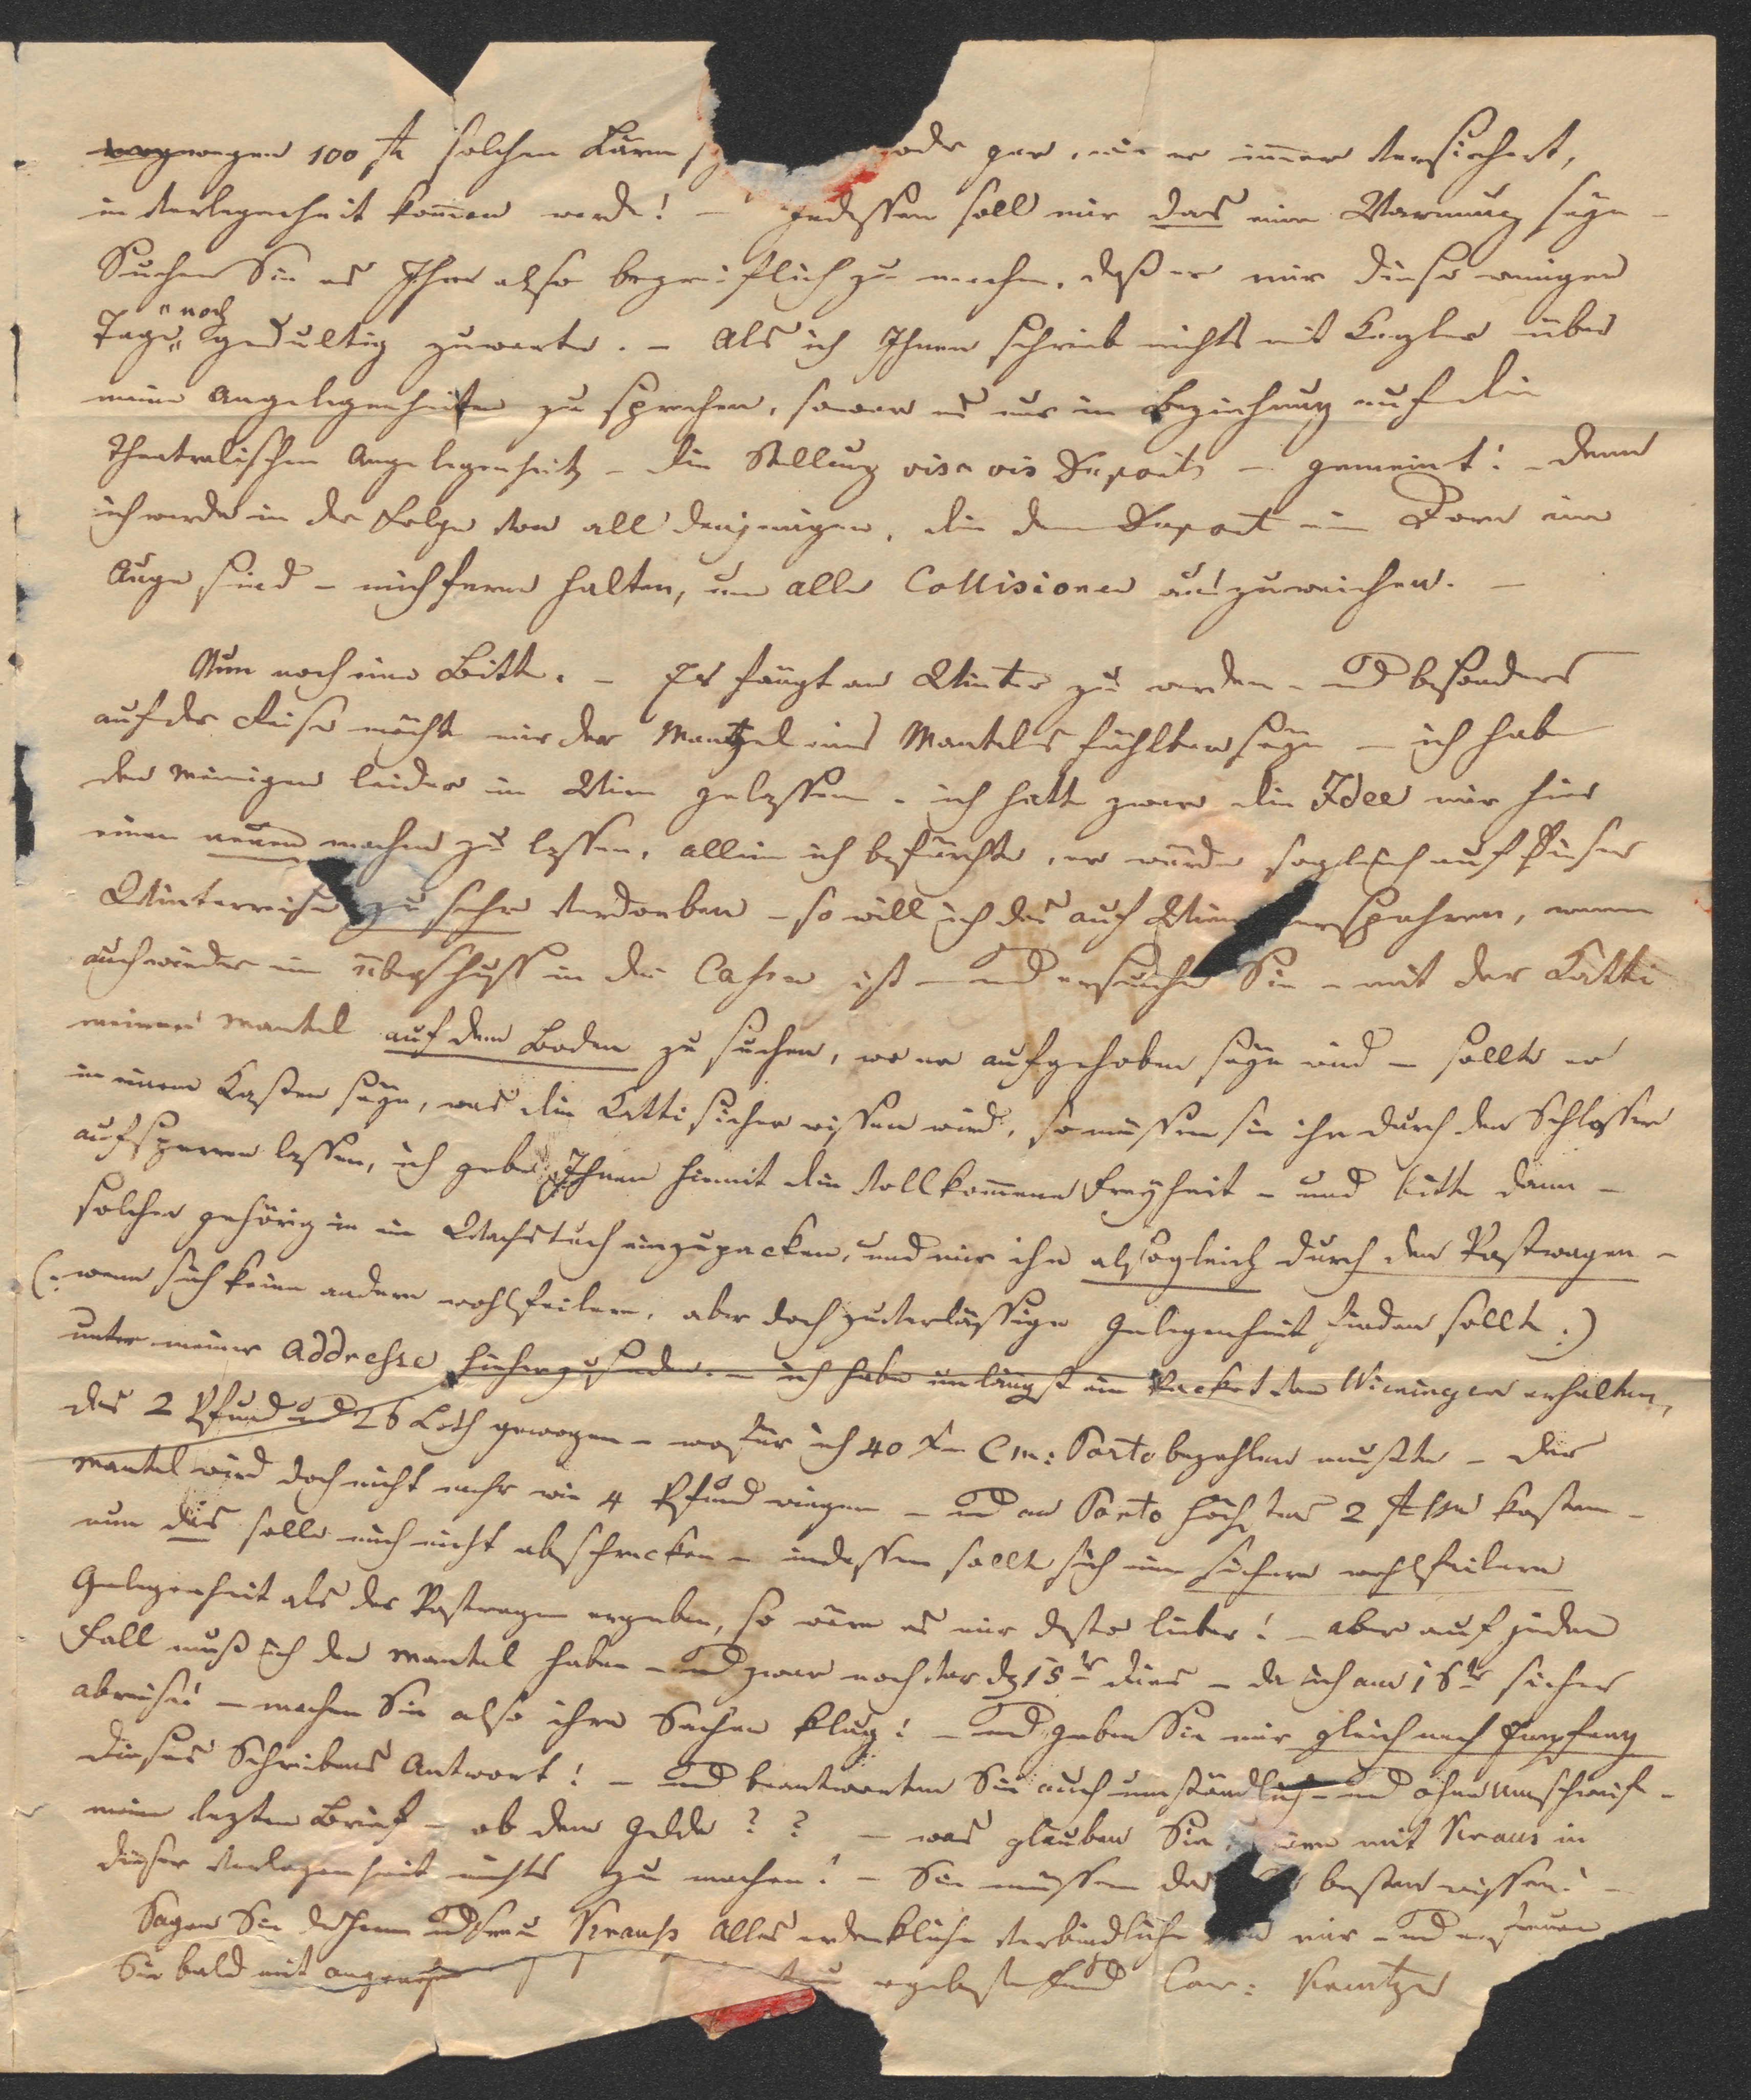 wegen 100 fl solchen Lärm oder gar, wie er immer versichert,
in Verlegenheit komen werde! – Indessen soll mir das eine Warnung seyn –
Suchen Sie es Ihm also begreiflich zu machen, daß er mir diese wenigen
Tage noch gedultig zuwarte. – Als ich Ihnen schrieb nichts mit Kegler über
meine Angelegenheiten zu sprechen, so war es nur in Beziehung auf die
Theatralischen Angelegenheiten – die Stellung vis a vis Duport – gemeint! – denn
ich werde in der Folge von all denjenigen, die dem Duport ein Dorn im
Auge sind – mich ferne halten, um alle Collisionen auszuweichen. –
Nun noch eine Bitte. – Es fängt an Winter zu werden – und besonders
auf der Reise möchte mir der Mangel eines Mantels fühlbar seyn – ich habe
den Meinigen leider in Wien gelassen. ich hatte zwar die Idee mir hier
einen neuen machen zu lassen, allein ich befürchte, er würde sogleich auf dieser
Winterreise zu sehr verdorben – so will ich das auf Wien ersparen, wenn
auch wieder ein überschuss in der Cassa ist – und ersuche Sie – mit der Katti
meinen Mantel auf dem Boden zu suchen, wo er aufgehoben seyn wird – sollte er
in einem Kasten seyn, was die Katti sicher wissen wird, so müssen sie ihn durch den Schlosser
aufsperren lassen, ich gebe Ihnen hiemit die vollkomene Freyheit – und bitte dann –
solchen gehörig in ein Wachstuch einzupacken, und mir ihn alsogleich durch den Postwagen –
(: wenn sich keine andere wohlfeilere, aber doch zuverlässige Gelegenheit finden sollte :)
unter meiner Addresse hieherzusenden. – ich habe unlängst ein Packet von Wieningen erhalten,
das 2 Pfund und 26 Loth gewogen – wofür ich 40 Xr Cm: Porto bezahlen mußte – der
Mantel wird doch nicht mehr wie 4 Pfund wiegen – und an Porto höchstens 2 fl kosten –
nun das solle mich nicht abschrecken – indessen sollte sich eine sichere wohlfeilere
Gelegenheit als der Postwagen ergeben, so wäre es mir desto lieber! – aber auf jeden
Fall muß ich den Mantel haben – und zwar noch vor dem 15tn dies – da ich am 16tn sicher
abreise! – machen Sie also ihre Sachen klug! – und geben Sie mir gleich nach Empfang
dieses Schreibens Antwort! – und beantworten Sie auch umständlich – und ohne Umschweif –
meine lezten Brief – ob dem Gelde?? – was glauben Sie, wäre mit Kraus in
dieser Verlegenheit nichts zu machen? – Sie müssen das besten wissen! –
Sagen Sie dem Herrn und Frau Krauss Alles erdenkliche Verbindliche von mir – und erfreuen
Sie bald mit ergebster Freund Con: Kreutzer